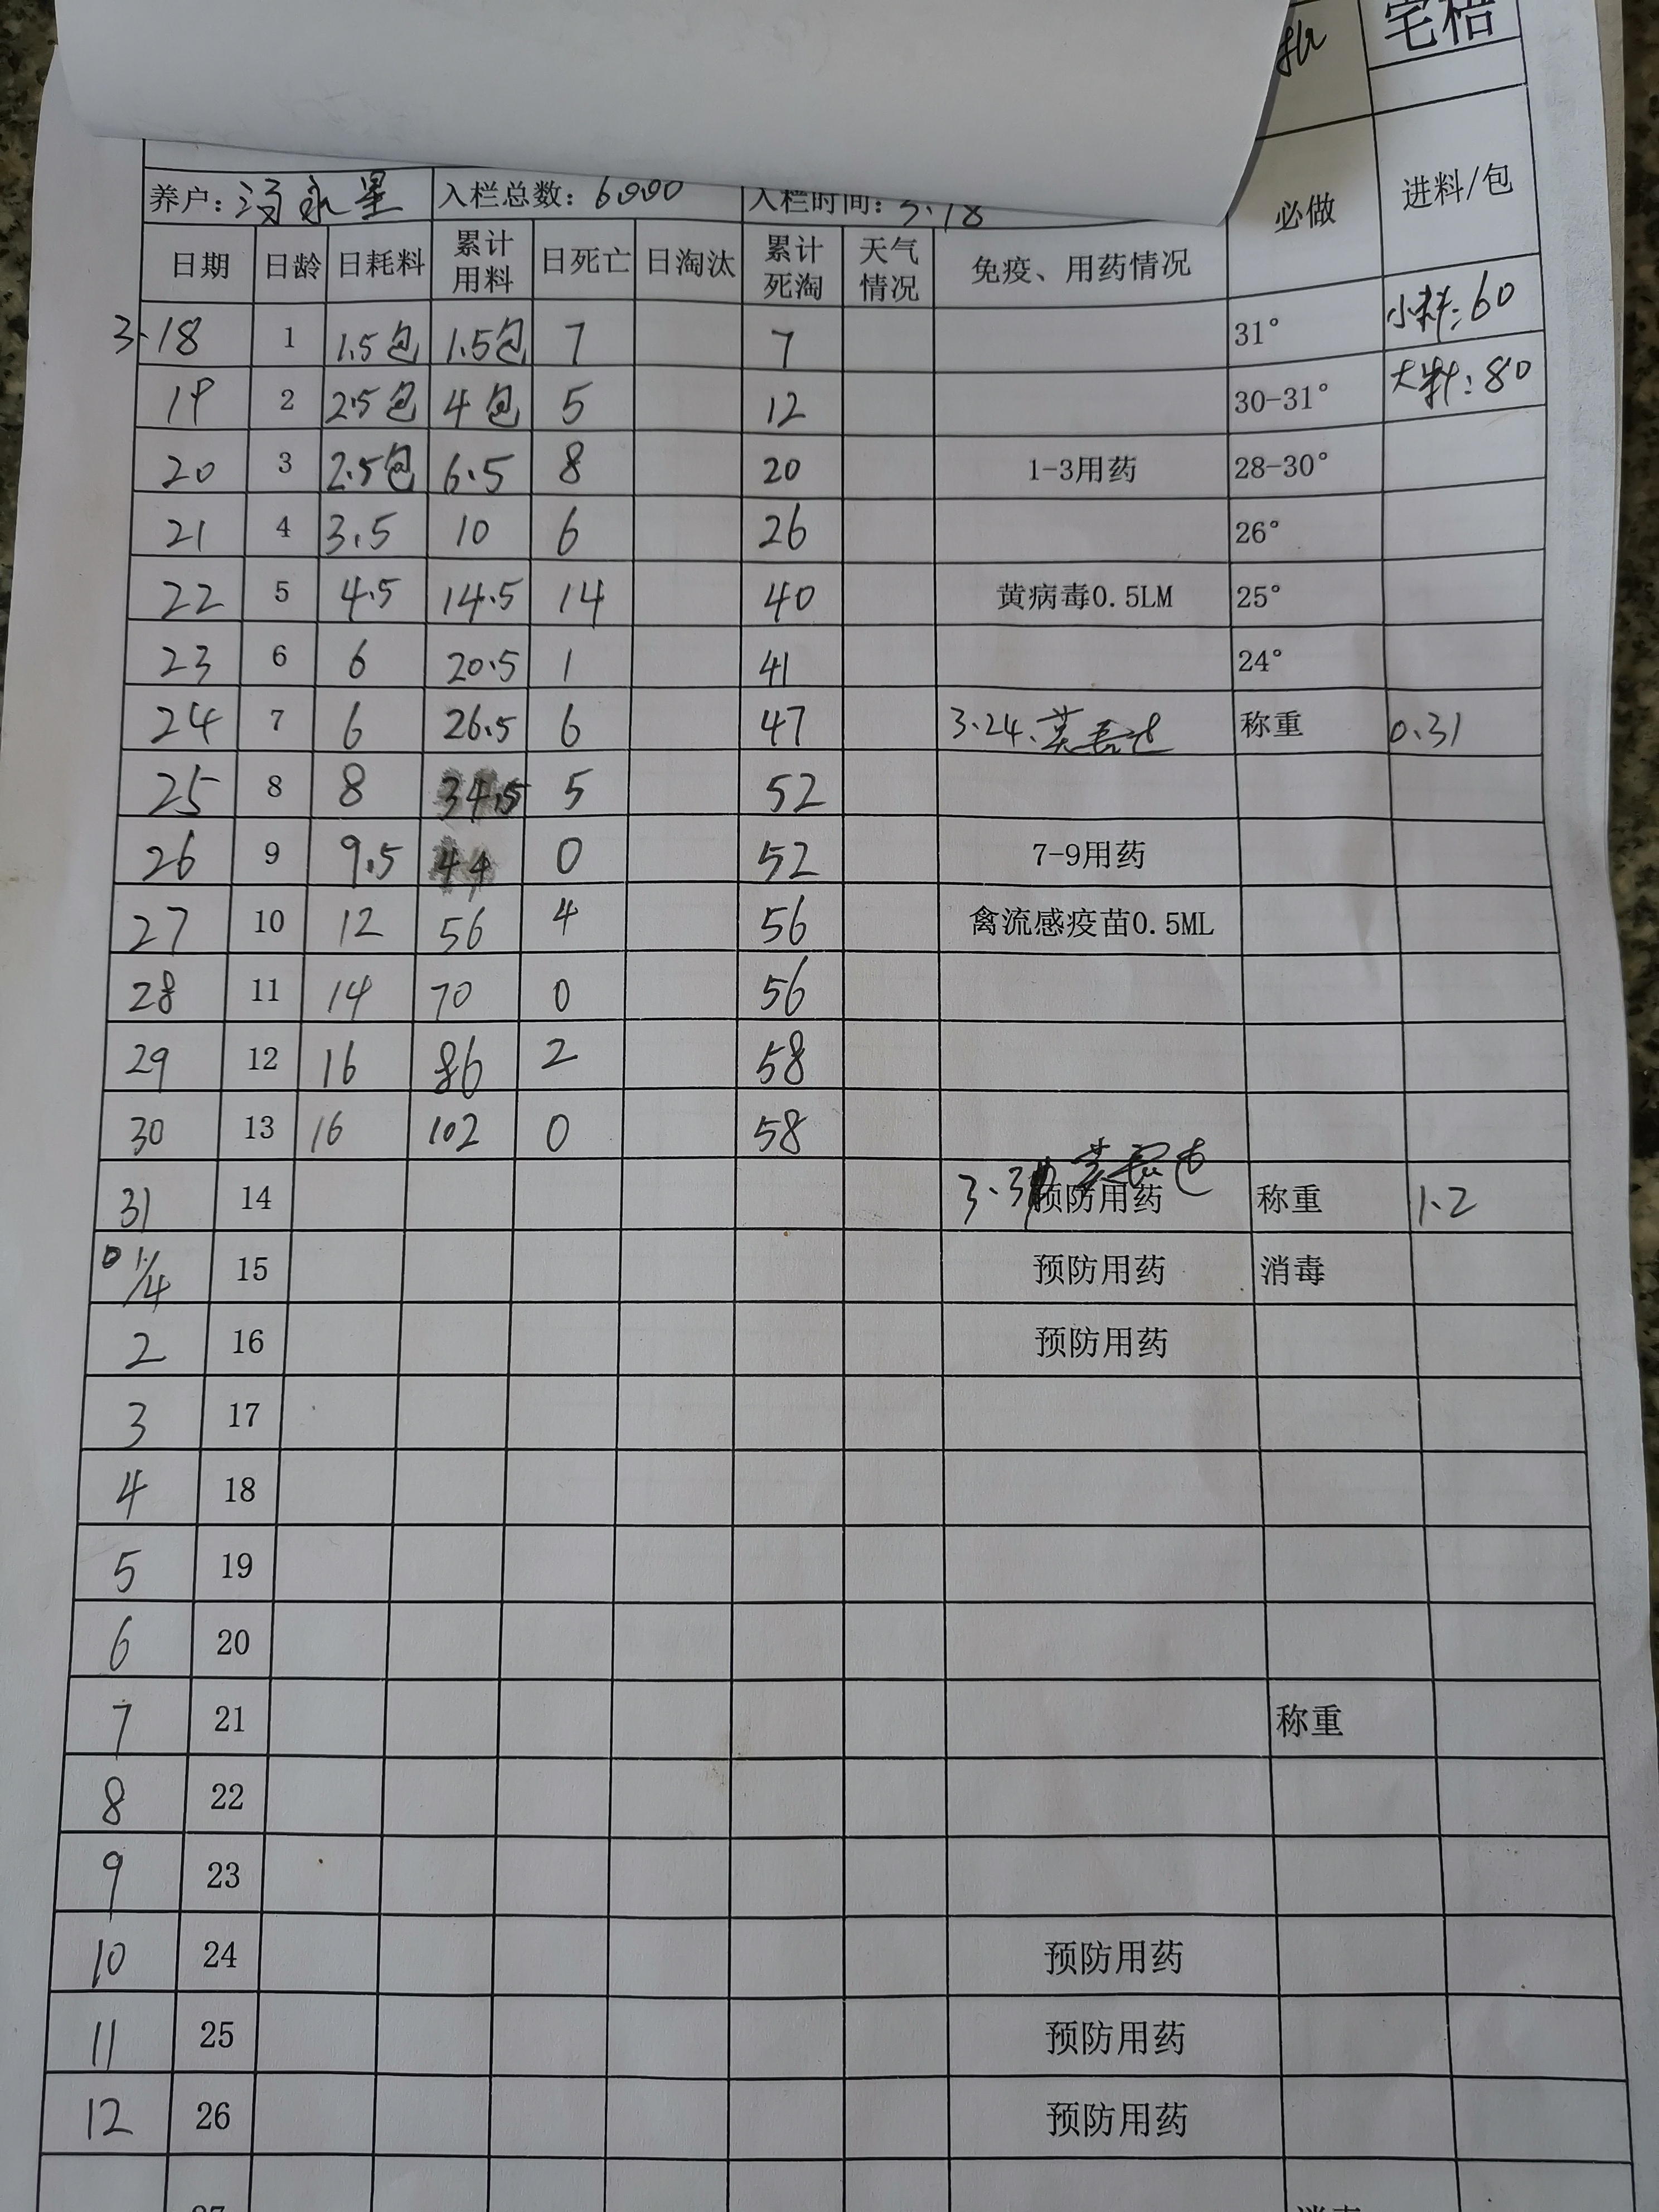 宅梧
养户: 冯永星 入栏总数: 6000 入栏时间: 3.18 必做 进料/包
日期 日龄 日耗料 累计用料 日死亡 日淘汰 累计死淘 天气情况 免疫、用药情况
3.18 1 1.5包 1.5包 7 7 31° 小料:60
19 2 2.5包 4包 5 12 30-31° 大料:80
20 3 2.5包 6.5 8 20 1-3用药 28-30°
21 4 3.5 10 6 26 26°
22 5 4.5 14.5 14 40 黄病毒0.5LM 25°
23 6 6 20.5 1 41 24°
24 7 6 26.5 6 47 3.24. 称重 0.31
25 8 8 34.5 5 52
26 9 9.5 44 0 52 7-9用药
27 10 12 56 4 56 禽流感疫苗0.5ML
28 11 14 70 0 56
29 12 16 86 2 58
30 13 16 102 0 58
31 14 预防用药 称重 1.2
1/4 15 预防用药 消毒
2 16 预防用药
3 17
4 18
5 19
6 20
7 21 称重
8 22
9 23
10 24 预防用药
11 25 预防用药
12 26 预防用药